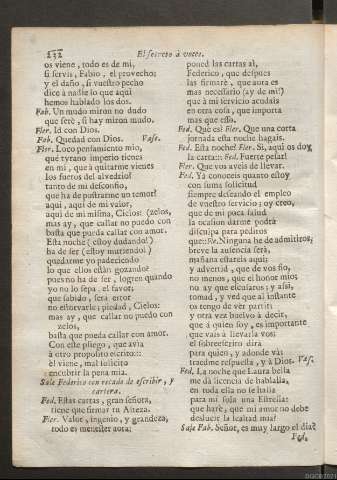 232
El secreto à voces.
os viene, todo es de mi,
si servis, Fabio, el provecho;
y el daño, si vuestro pecho
dice à nadie lo que aqui
hemos hablado los dos.
Fab. Un mudo miron no dudo
que serè, si hay miron mudo.
Fler. Id con Dios.
Fab. Quedad con Dios. Vase.
Fler. Loco pensamiento mio,
què tyrano imperio tienes
en mi, que à quitarme vienes
los fueros del alvedrio?
tanto de mi desconfio,
que ha de postrarme un temor?
aqui, aqui de mi valor,
aqui de mi misma, Cielos: (zelos,
mas ay, que callar no puedo con
basta que pueda callar con amor.
Esta noche (estoy dudando!)
ha de ser (estoy muriendo!)
quedarme yo padeciendo
lo que ellos estàn gozando?
pues no ha de ser, logren quando
yo no lo sepa, el favor;
que sabido, serà error
no estorvarle; piedad, Cielos:
mas ay, que callar no puedo con
zelos,
basta que pueda callar con amor.
Con este pliego, que avia
à otro proposito escrito:::
èl viene, mal solicito
encubrir la pena mia.
Sale Federico con recado de escribir, y
cartera.
Fed. Estas cartas, gran señora,
tiene que firmar tu Alteza.
Fler. Valor, ingenio, y grandeza,
todo es menester aora;
poned las cartas aì,
Federico, que despues
las firmarè, que aora es
mas necessario (ay de mi!)
que à mi servicio acudais
en otra cosa, que importa
mas que esso.
Fed. Què es? Fler. Que una corta
jornada esta noche hagais.
Fed. Esta noche? Fler. Sì, aqui os doy
la carta::: Fed. Fuerte pesar!
Fler. Que vos aveis de llevar.
Fed. Yà conoceis quanto estoy
con suma solicitud
siempre deseando el empleo
de vuestro servicio; oy creo,
que de mi poca salud
la ocasion darme podrà
disculpa para pediros
que:: Fle. Ninguna he de admitiros;
breve la ausencia serà,
mañana estareis aqui;
y advertid, que de vos fio,
no menos, que el honor mio;
no ay que escusaros; y assi,
tomad, y ved que al instante
os tengo de ver partir:
y otra vez buelvo à decir,
que à quien soy, es importante
que vais à llevarla vos:
el sobreescrito dirà
para quien, y adonde và:
traedme respuesta, y à Dios. Vase.
Fed. La noche que Laura bella
me dà licencia de hablalla,
en toda ella no se halla
para mi sola una Estrella?
què harè, que mi amor no debe
deslucir la lealtad mia?
Sale Fab. Señor, es muy largo el dia?
Fed.